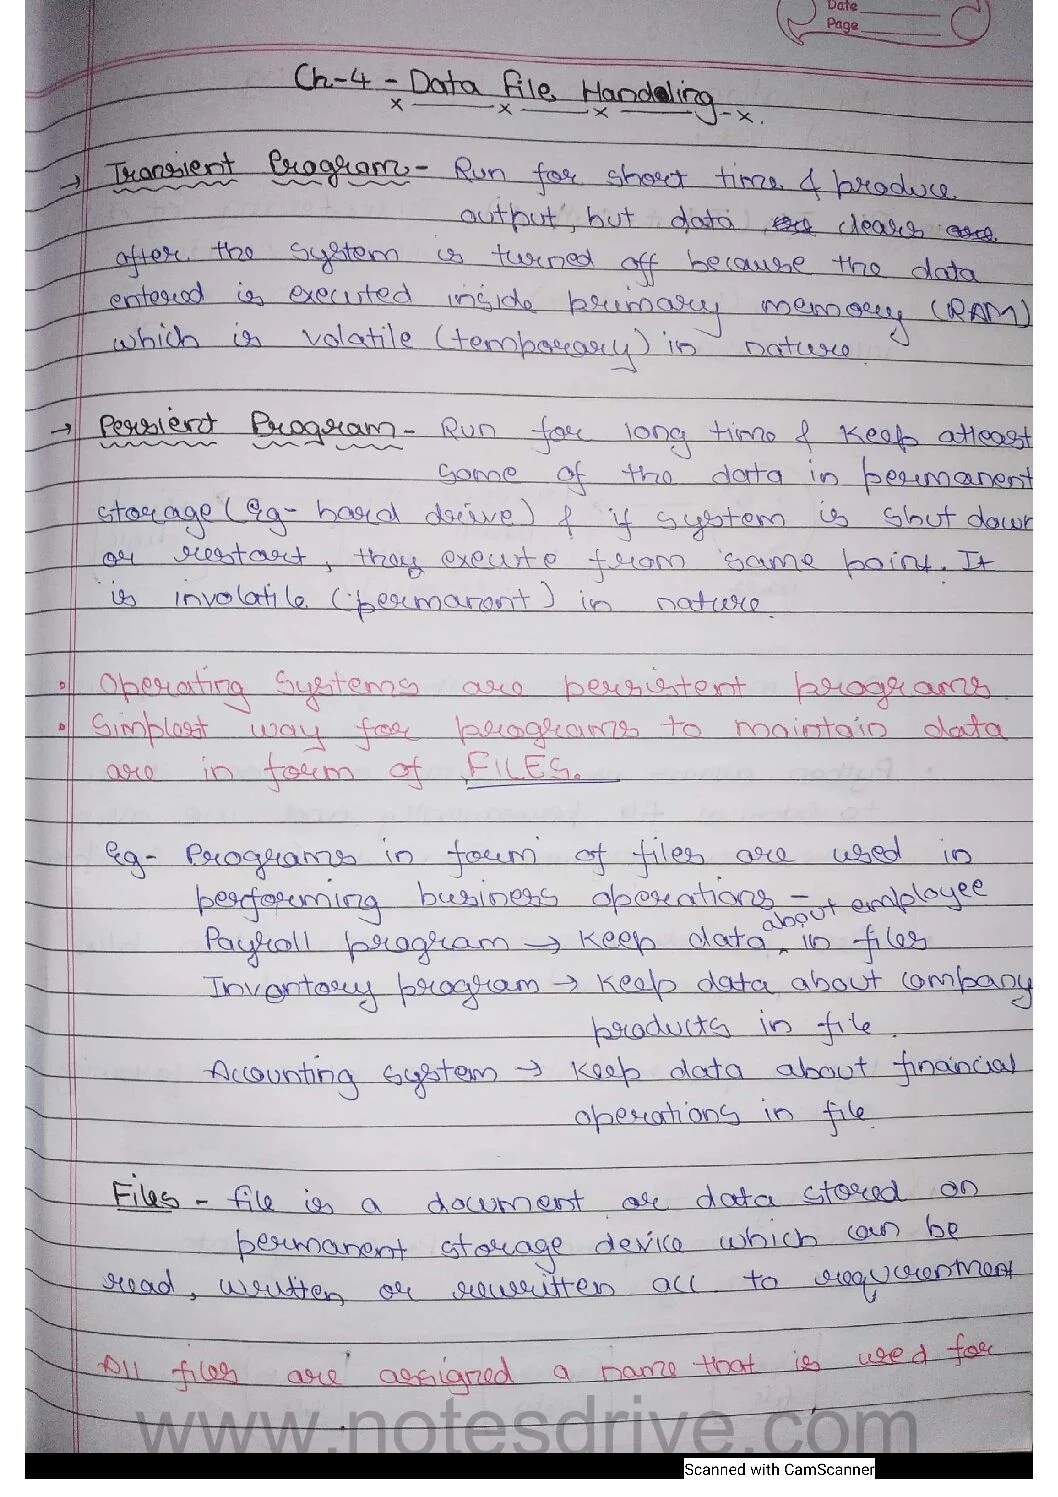 Date
Page
Ch-4 - Data File Handling
→ Transient Program - Run for short time & produce
output, but data clears
after the system is turned off because the data
entered is executed inside primary memory (RAM)
which is volatile (temporary) in nature
→ Persient Program - Run for long time & keep atleast
some of the data in permanent
storage (Eg- hard drive) & if system is shut down
or restart, they execute from same point. It
is involatile (permanent) in nature.
• Operating Systems are persistent programs
• Simplest way for programs to maintain data
are in form of FILES.
Eg- Programs in form of files are used in
performing business operations -
Payroll program → keep data about employee in files
Inventory program → keep data about company
products in file.
Accounting system → keep data about financial
operations in file.
Files - file is a document or data stored on
permanent storage device which can be
read, written or rewritten acc to requirement
All files are assigned a name that is used for
www.notesdrive.com
Scanned with CamScanner